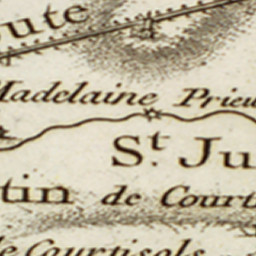 oute
Madelaine Prieu
St. Ju
tin de Court
le Courtisols